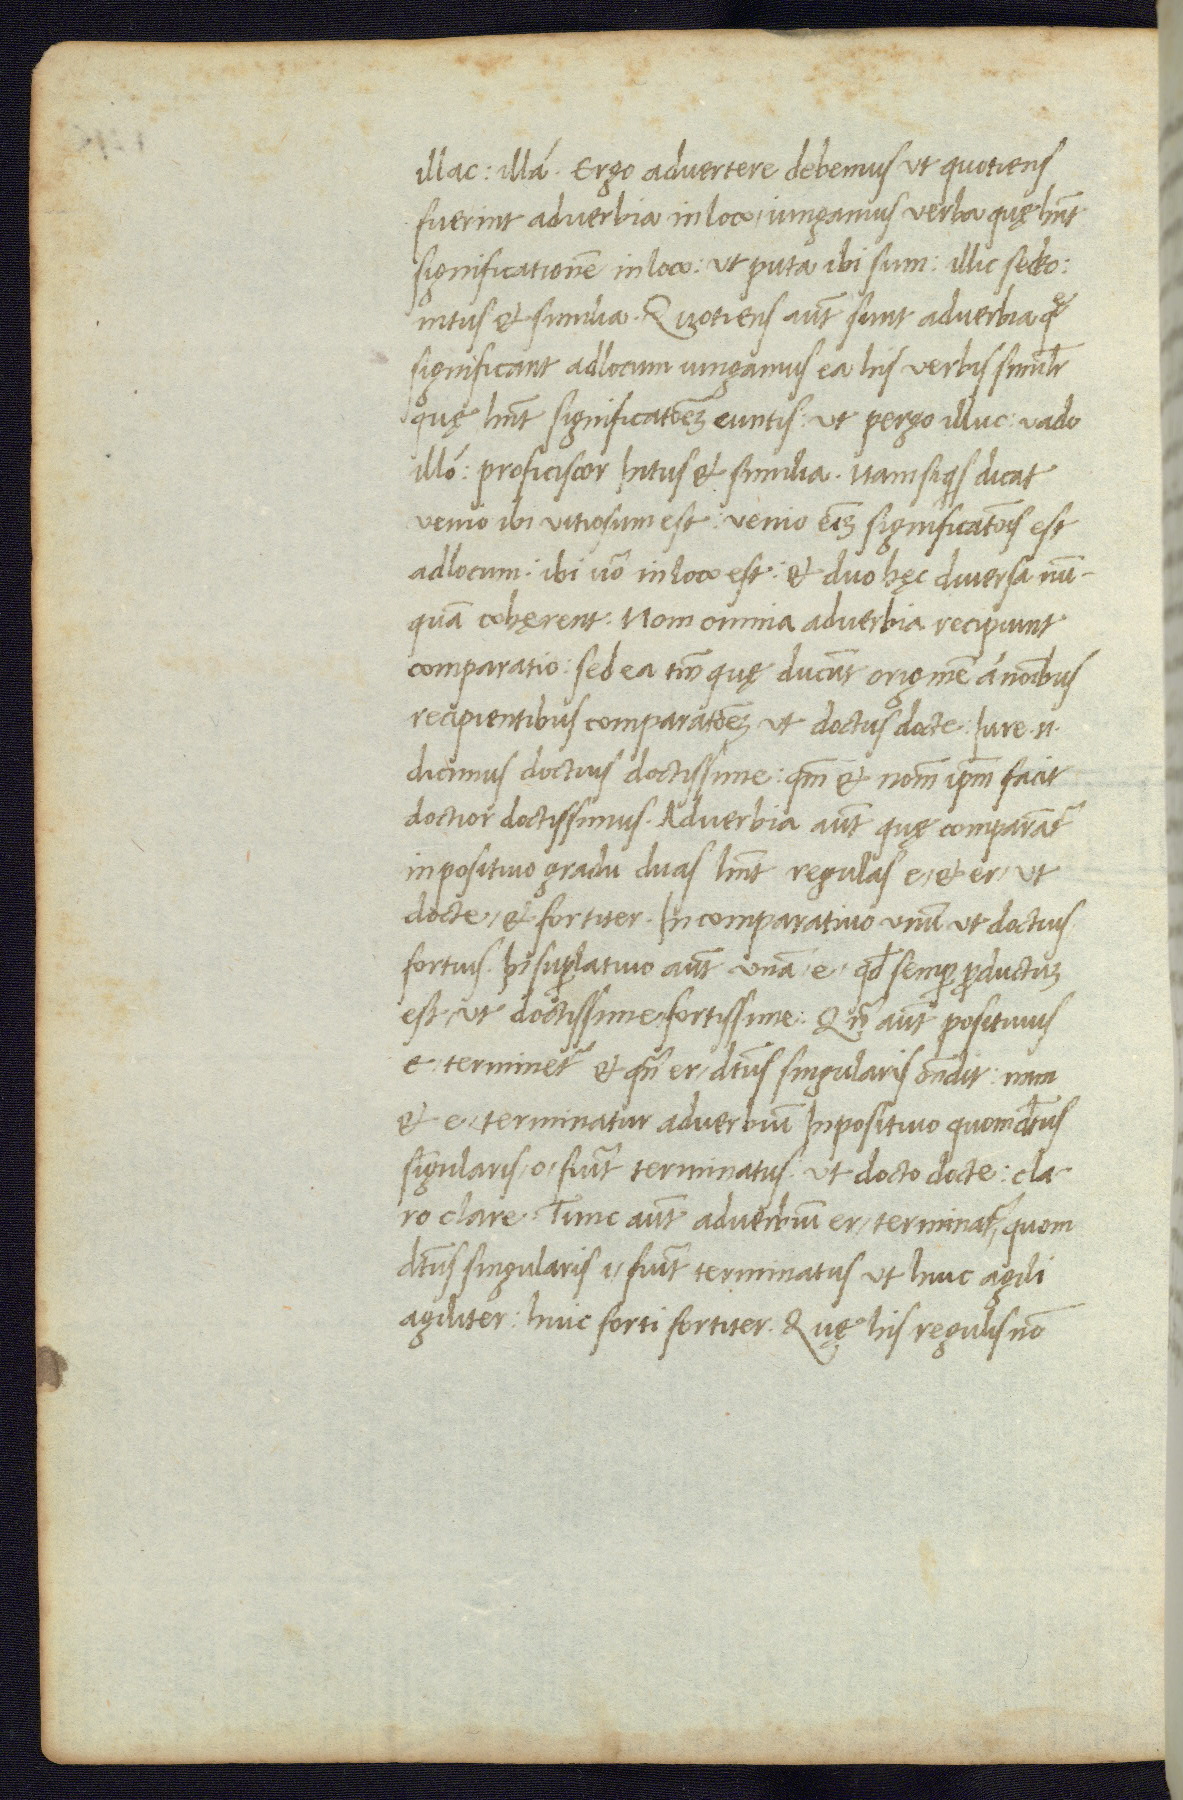 illac: illá. Ergo advertere debemus ut quotiens
fuerint adverbia in loco, iungamus verba quę hn̄t
significationē in loco: ut puta ibi sum: illic sedeo:
intus & similia. Quotiens aūt sunt adverbia q̨
significant ad locum iungamus ea his verbis simil̄r
quę hn̄t significatōꝫ euntis: ut pergo illuc: vado
illó: proficiscor Intus & similia. Nam siq̄s dicat
venio ibi vitiosum est: venio eīꝫ significatōis est
ad locum: ibi ūo in loco est: & duo hęc diversa nū-
quā cohęrent. Non omnia adverbia recipiunt
comparatio: sed ea tm̄ quę ducūt originē á noībus
recipientibus comparatōeꝫ ut doctus docte: Iure .n.
dicimus doctius doctissime: qm̄ & nom̄ ip̄m facit
doctior doctissimus. Adverbia aūt quę comparāt̄
in positivo gradu duas hn̄t regulas e, & er, ut
docte, & fortiter. In comparativo unū ut doctius
fortius. In suplativo aūt unā, e, qd̄ semp ꝓductuꝫ
est, ut doctissime, fortissime: Qn̄ aūt positivus
e, terminet̄ & qn̄ er, dt̄us singularis oñdit: nam
& e, terminatur adverbiū In positivo quom dt̄us
singularis, o, fiūt terminatus: ut docto docte: cla
ro clare. Tunc aūt adverbiū er, terminat̄, quom
dt̄us singularis i, fūit terminatus ut huic agili
agiliter: huic forti fortiter. Quę his regulis nō